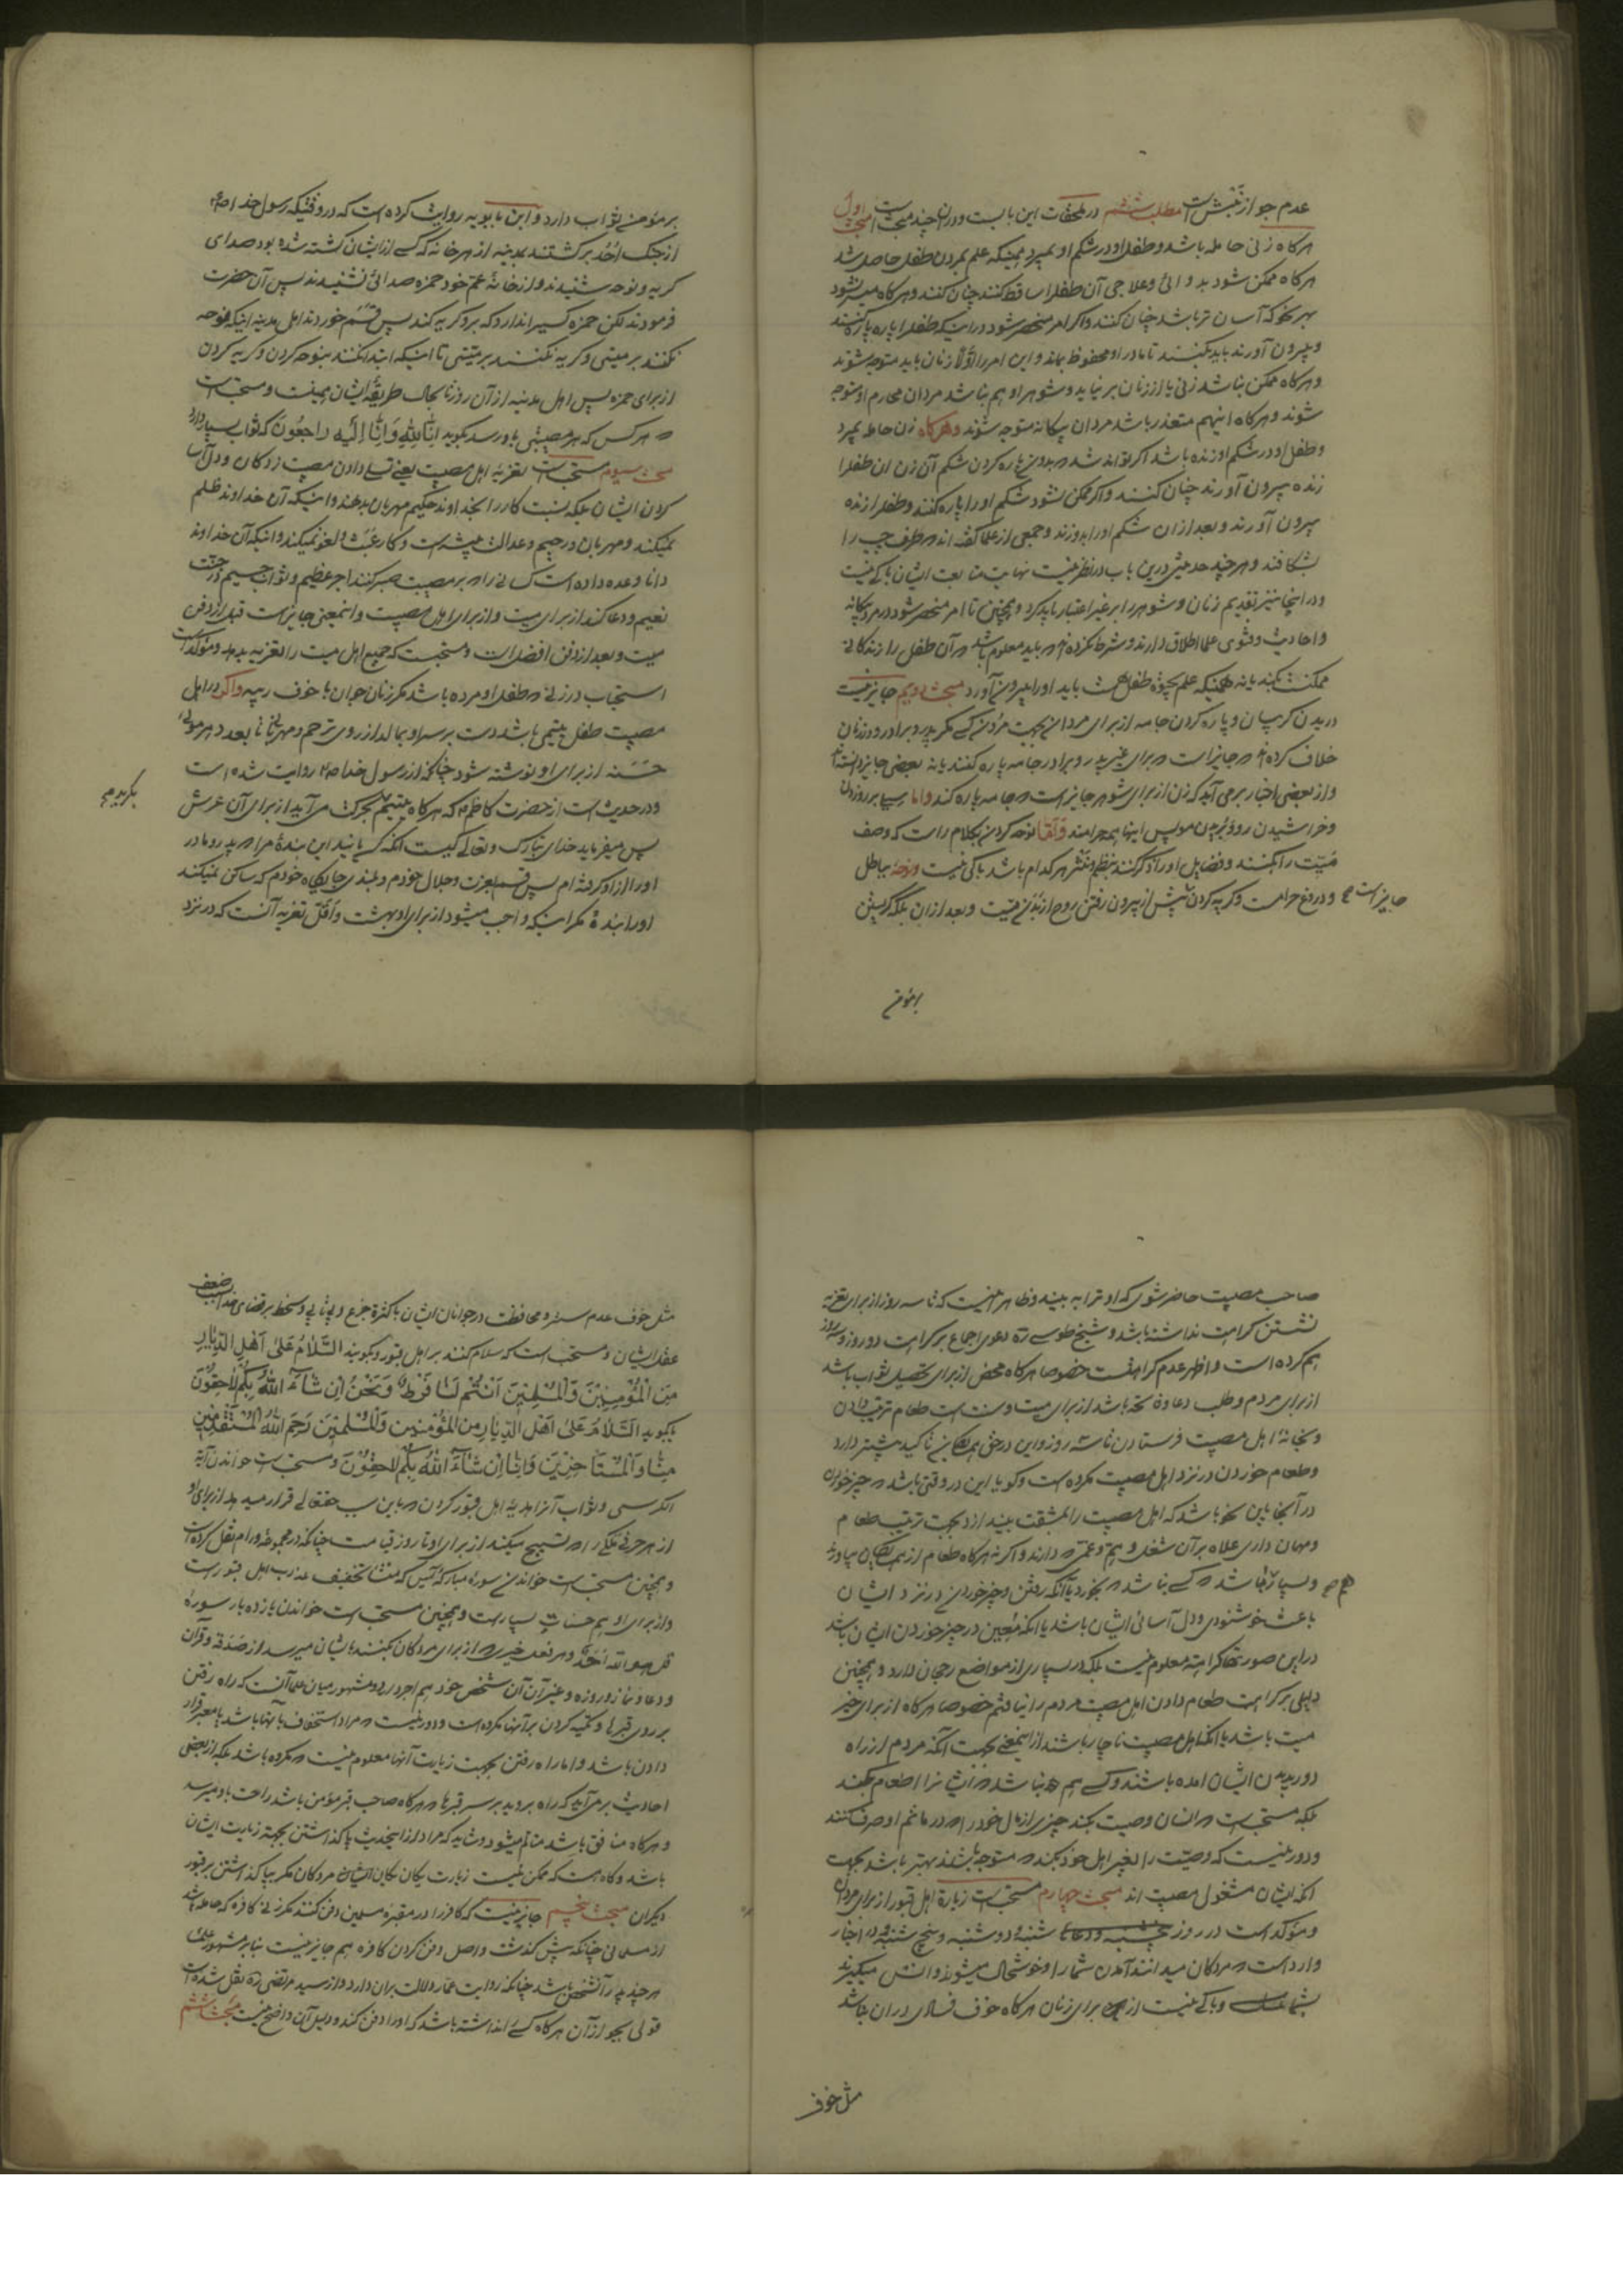 عدم جواز نبش است مطلب ششم در ملحقات این بابست و دران چند مبحث است مبحث اول
هرکاه زنی حامله باشد و طفل او در شکم او بمیرد همینکه علم بمردن طفل حاصل شد
هرکاه ممکن شود بدوائی و علاجی آن طفل را ساقط کنند چنان کنند و هرکاه میسر نشود
بهر نحو که آسان تر باشد چنان کنند و اکر امر منحصر شود در اینکه طفل را پاره پاره کنند
و بیرون آورند باید بکنند تا مادر او محفوظ بماند و این امر را اولا زنان باید متوجه شوند
و هرکاه ممکن نباشد زنی یا از زنان بر نیاید و شوهر او هم نباشد مردان محارم او متوجه
شوند و هرکاه اینهم متعذر باشد مردان بیکانه متوجه شوند و هرکاه زن حامله بمیرد
و طفل او در شکم او زنده باشد اکر تواند شد که بدون پاره کردن شکم آن زن ان طفل را
زنده بیرون آورند چنان کنند و اکر ممکن نشود شکم او را پاره کنند و طفل را زنده
بیرون آورند و بعد از ان شکم او را بدوزند و جمعی از علما کفته اند که طرف چپ را
بشکافند و هر چند حدیثی درین باب در نظر نیست نهایت متابعت ایشان باکی نیست
و در اینجا نیز تقدیم زنان و شوهر را بر غیر اعتبار باید کرد و همچنین تا امر منحصر شود در مرد بیکانه
و احادیث و فتوی علما اطلاق دارند و شرط نکرده اند که باید معلوم باشد که آن طفل را زندکانی
ممکنست بکند یا نه همینکه علم بحیوة طفل هست باید او را بیرون آورد مبحث دویم جایز نیست
دریدن کریبان و پاره کردن جامه از برای مردان بجهت مردن کسی مکر پدر و برادر و در زنان
خلاف کرده اند که جایز است که برای غیر پدر و برادر جامه پاره کنند یا نه بعضی جایز دانسته اند
و از بعضی اخبار بر می آید که زن از برای شوهر جایز است که جامه پاره کند و اما سیلی بر رو زدن
و خراشیدن رو و بریدن مو پس اینها همه حرامند و اما نوحه کردن بکلام راست که وصف
میت را بکنند و فضایل او را ذکر کنند بنظم و نثر هر کدام باشد باکی نیست و نوحه بباطل
و دروغ حرامست و کریه کردن پیش از بیرون رفتن روح از بدن میت و بعد از ان بلکه کریستن
جایز است صح
بر مؤمن
بر مؤمن ثواب دارد و ابن بابویه روایت کرده است که در وقتیکه رسول خدا ص
از جنک احد برکشتند بمدینه از هر خانه که کسی از ایشان کشته شده بود صدای
کریه و نوحه شنیدند و از خانه عم خود حمزه صدائی نشنیدند پس آن حضرت
فرمودند لکن حمزه کسیرا ندارد که برو کریه کند پس قسم خوردند اهل مدینه اینکه نوحه
نکنند بر میتی و کریه نکنند بر میتی تا اینکه ابتدا کنند بنوحه کردن و کریه کردن
از برای حمزه پس اهل مدینه از آن روز تا بحال طریقه ایشان همینست و مستحب است
که هر کس که هر مصیبتی باو رسد بکوید انا لله و انا الیه راجعون که ثواب بسیار دارد
مبحث سیوم مستحب است تعزیه اهل مصیبت یعنی تسلی دادن مصیبت زدکان و دل آسا
کردن ایشان بلکه نسبت کار را بخداوند حکیم مهربان بدهند و اینکه آن خداوند ظلم
نمیکند و مهربان و رحیم و عدالت پیشه است و کار عبث و لغو نمیکند و اینکه آن خداوند
دانا وعده داده است کسانی را که بر مصیبت صبر کنند اجر عظیم و ثواب جسیم در جنت
نعیم و دعا کند از برای میت و از برای اهل مصیبت و اینمعنی جایز است قبل از دفن
میت و بعد از دفن افضل است و مستحبست که جمیع اهل میت را تعزیه بدهد و مؤکد است
استحباب در زنی که طفل او مرده باشد مکر زنان جوان با خوف ریبه و اکر در اهل
مصیبت طفل یتیمی باشد دست بر سر او بمالد از روی ترحم و مهربانی تا بعدد هر موئی
حسنه از برای او نوشته شود چنانکه از رسول خدا ص روایت شده است
و در حدیث است از حضرت کاظم ع که هرکاه یتیم بکرید بحرکت می آید از برای آن عرش
بکرید صح
پس میفرماید خدای تبارک و تعالی کیست آنکه کریانید این بنده مرا که پدر و مادر
او را از او کرفته ام پس قسم بعزت و جلال خودم و بلندی جایکاه خودم که ساکن نمیکند
او را بنده مکر اینکه واجب میشود از برای او بهشت و اقل تعزیه آنست که در نزد
صاحب مصیبت حاضر شوی که او ترا به بیند و ظاهر اینست که تا سه روز از برای تعزیه
نشستن کراهت نداشته باشد و شیخ طوسی ره دعوی اجماع بر کراهت دو روز و سه روز
هم کرده است و اظهر عدم کراهتست خصوصا هرکاه محض از برای تحصیل ثواب باشد
از برای مردم و طلب دعا و فاتحه باشد از برای میت و سنت است طعام ترتیب دادن
و بخانه اهل مصیبت فرستادن تا سه روز و این در حق همسایکان تاکید بیشتر دارد
و طعام خوردن در نزد اهل مصیبت مکروه است و کویا این در وقتی باشد که چیز خوردن
در آنجا باین نحو باشد که اهل مصیبت را بمشقت بیندازد بجهت ترتیب طعام
و مهمان داری علاوه بر آن شغل و هم و غمی که دارند و اکر نه هرکاه طعام از همسایکان بیاورند
و بسیار باشد که کسی نباشد که بخورد یا آنکه رفتن و چیز خوردن در نزد ایشان
باعث خوشنودی و دل آسائی ایشان باشد یا آنکه معین در چیز خوردن ایشان باشد
در این صورتها کراهت معلوم نیست بلکه در بسیاری از مواضع رجحان دارد و همچنین
دلیلی بر کراهت طعام دادن اهل مصیبت مردم را نیافتم خصوصا هرکاه از برای خیر
میت باشد یا آنکه اهل مصیبت ناچار باشند از اینمعنی بجهت آنکه مردم از راه
دور بدیدن ایشان امده باشند و کسی هم نباشد که ایشانرا اطعام بکند
بلکه مستحب است که انسان وصیت بکند چیزی از مال خود را که در ماتم او صرف کنند
و دور نیست که وصیت را بغیر اهل خود بکند که متوجه باشند بهتر باشد بجهت
آنکه ایشان مشغول مصیبت اند مبحث چهارم مستحب است زیارة اهل قبور از برای مردان
و مؤکد است در روز شنبه و دوشنبه و پنجشنبه و در اخبار
وارد است که مردکان میدانند آمدن شما را و خوشحال میشوند و انس میکیرند
بشما و باکی نیست از برای زنان هرکاه خوف فسادی در ان نباشد
مثل خوف
مثل خوف عدم ستر و محافظت در جوانان ایشان یا کثرة جزع و بیتابی و سخط بر قضای خدا بسبب ضعف
عقل ایشان و مستحب است که سلام کنند بر اهل قبور و بکویند السلام علی اهل الدیار
من المؤمنین و المسلمین انتم لنا فرط و نحن ان شاء الله بکم لاحقون
یا بکوید السلام علی اهل الدیار من المؤمنین و المسلمین رحم الله المستقدمین
منا و المستأخرین و انا ان شاء الله بکم لاحقون و مستحب است خواندن آیة
الکرسی و ثواب آنرا هدیه اهل قبور کردن که باین سبب حقتعالی قرار میدهد از برای او
از هر حرفی ملکی را که تسبیح میکند از برای او تا روز قیامت چنانکه در مجموعه ورام نقل کرده است
و همچنین مستحب است خواندن سوره مبارکه یس که منشأ تخفیف عذاب اهل قبور است
و از برای او هم حسنات بسیار است و همچنین مستحب است خواندن یازده بار سوره
قل هو الله احد و هر فعل خیری که از برای مردکان بکنند بایشان میرسد از صدقه و قرآن
و دعا و نماز و روزه و غیر آن و آن شخص خود هم اجر دارد و مشهور میان علما آنست که راه رفتن
بر روی قبرها و تکیه کردن بر آنها مکروه است و دور نیست که مراد استخفاف بآنها باشد یا معبر قرار
دادن باشد و اما راه رفتن بجهت زیارت آنها معلوم نیست که مکروه باشد بلکه از بعضی
احادیث بر می آید که راه بروید بر سر قبرها که هرکاه صاحب قبر مؤمن باشد راحت باو میرسد
و هرکاه منافق باشد متألم میشود و شاید که مراد از اینحدیث پا کذاشتن بجهة زیارت ایشان
باشد و کاه هست که ممکن نیست زیارت یکان یکان ایشان مردکان مکر بپا کذاشتن بر قبور
دیکران مبحث پنجم جایز نیست که کافر را در مقبره مسلمین دفن کنند مکر زن کافره که حامله باشد
از مسلمانی چنانکه پیش کذشت و اصل دفن کردن کافر هم جایز نیست بنابر مشهور علما
هر چند پدر آنشخص باشد چنانکه روایت عمار دلالت بران دارد و از سید مرتضی ره نقل شده است
قولی بجواز آن هرکاه کسی نداشته باشد که او را دفن کند و دلیل آن واضح نیست مبحث ششم